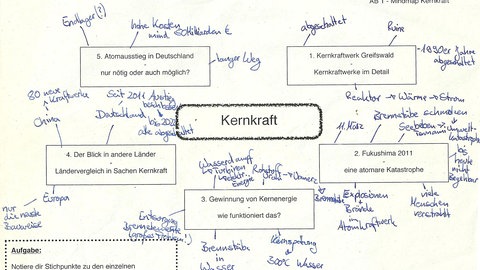 AB 1 - Mindmap Kernkraft
Endlager?!
hohe Kosten
mind.
€
5. Atomausstieg in Deutschland
nur nötig oder auch möglich?
langer Weg
abgeschaltet
Ruine
1. Kernkraftwerk Greifswald
Kernkraftwerke im Detail
1990er Jahre
abgeschaltet
Reaktor → Wärme → Strom
Kernkraft
80 neue
Kraftwerke
China
Seit 2011
Deutschland
bis 2022
alle abgeschaltet
4. Der Blick in andere Länder
Ländervergleich in Sachen Kernkraft
Europa
nur
die
11. März
Brennstäbe schmelzen
Seebeben
Tsunami
Umwelt-
katastrophe
2. Fukushima 2011
eine atomare Katastrophe
bis
heute
nicht
begehbar
Explosionen
Brände
in
Atomkraftwerk
viele
Menschen
verstrahlt
Wasserdampf
→ Turbinen
Energie
Rohstoff
Uran
Wärme
3. Gewinnung von Kernenergie
wie funktioniert das?
Entsorgung
Brennelemente
Brennstäbe
in
Wasser
Kernspaltung
300°C Wasser
Aufgabe:
Notiere dir Stichpunkte zu den einzelnen